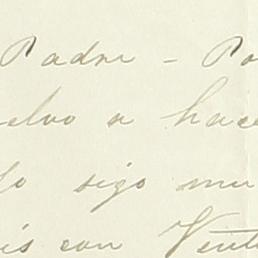 Padre - Po
elvo a hace
lo sigo mu
is con Vent